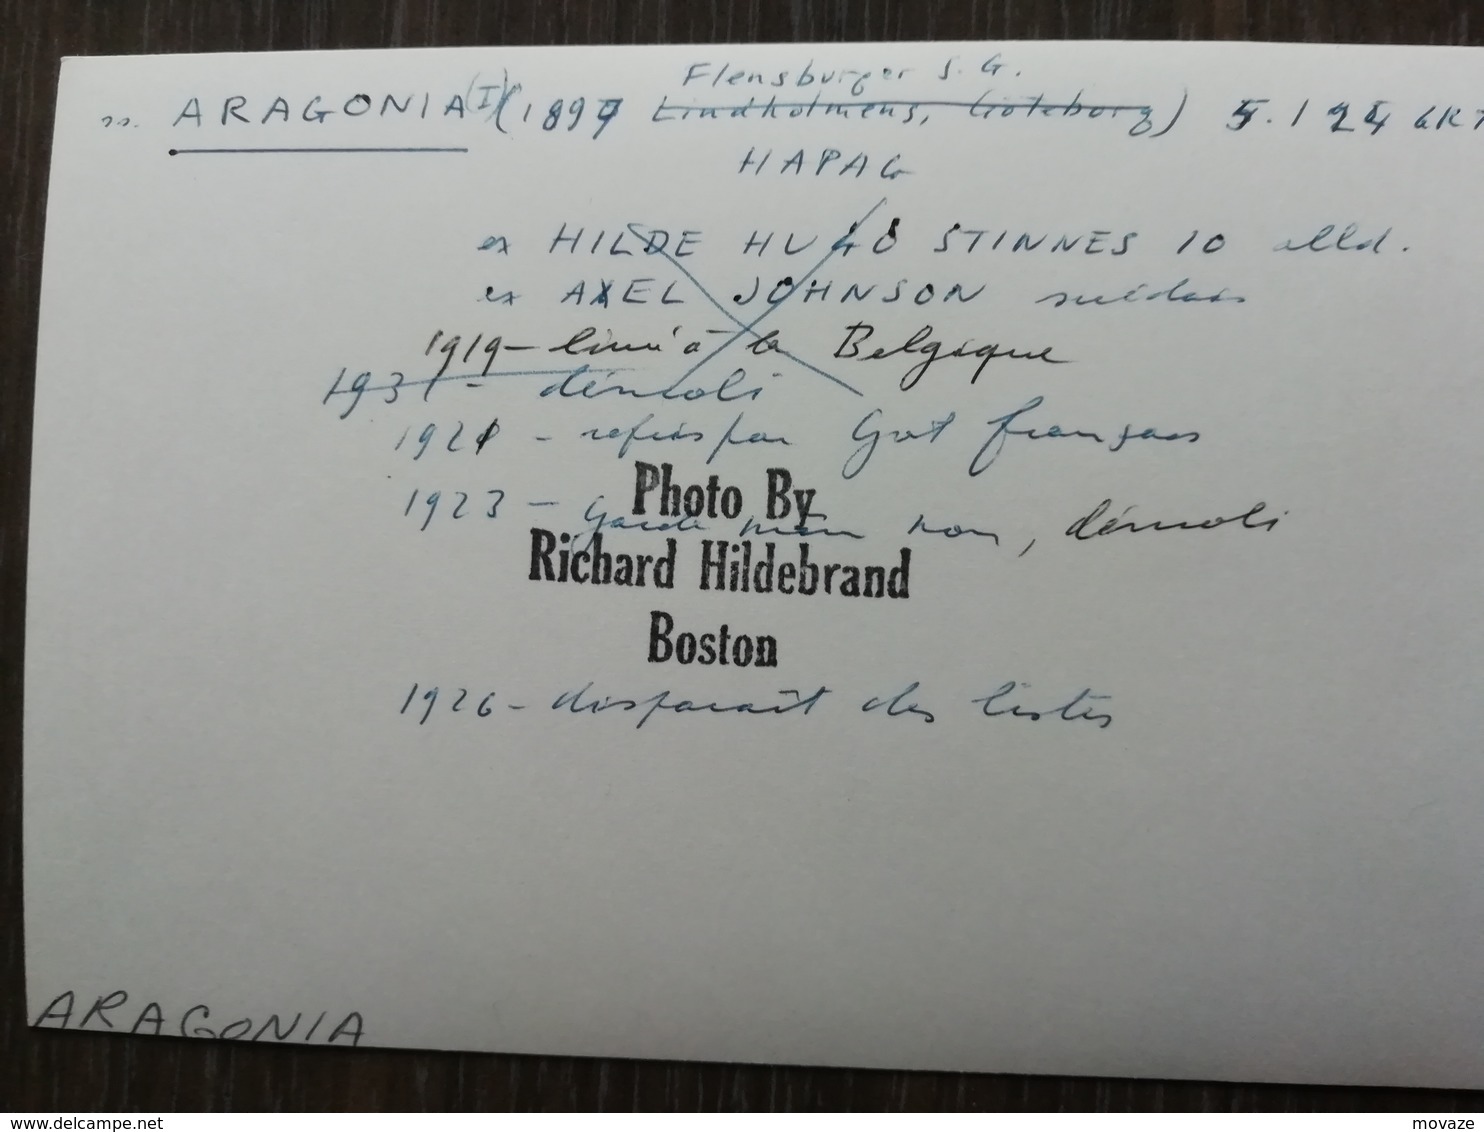 Flensburger S. G.
ss. ARAGONIA (I) (1897 Lindholmens, Göteborg) 5.124 GRT
HAPAG
ex HILDE HUGO STINNES 10 alld.
ex AXEL JOHNSON suédois
1919 - livré à la Belgique
1931 - démoli
1921 - repris par Gvt français
1923 - Garde même nom, démoli
Photo By
Richard Hildebrand
Boston
1926 - disparaît des listes
ARAGONIA
delcampe.net
movaze